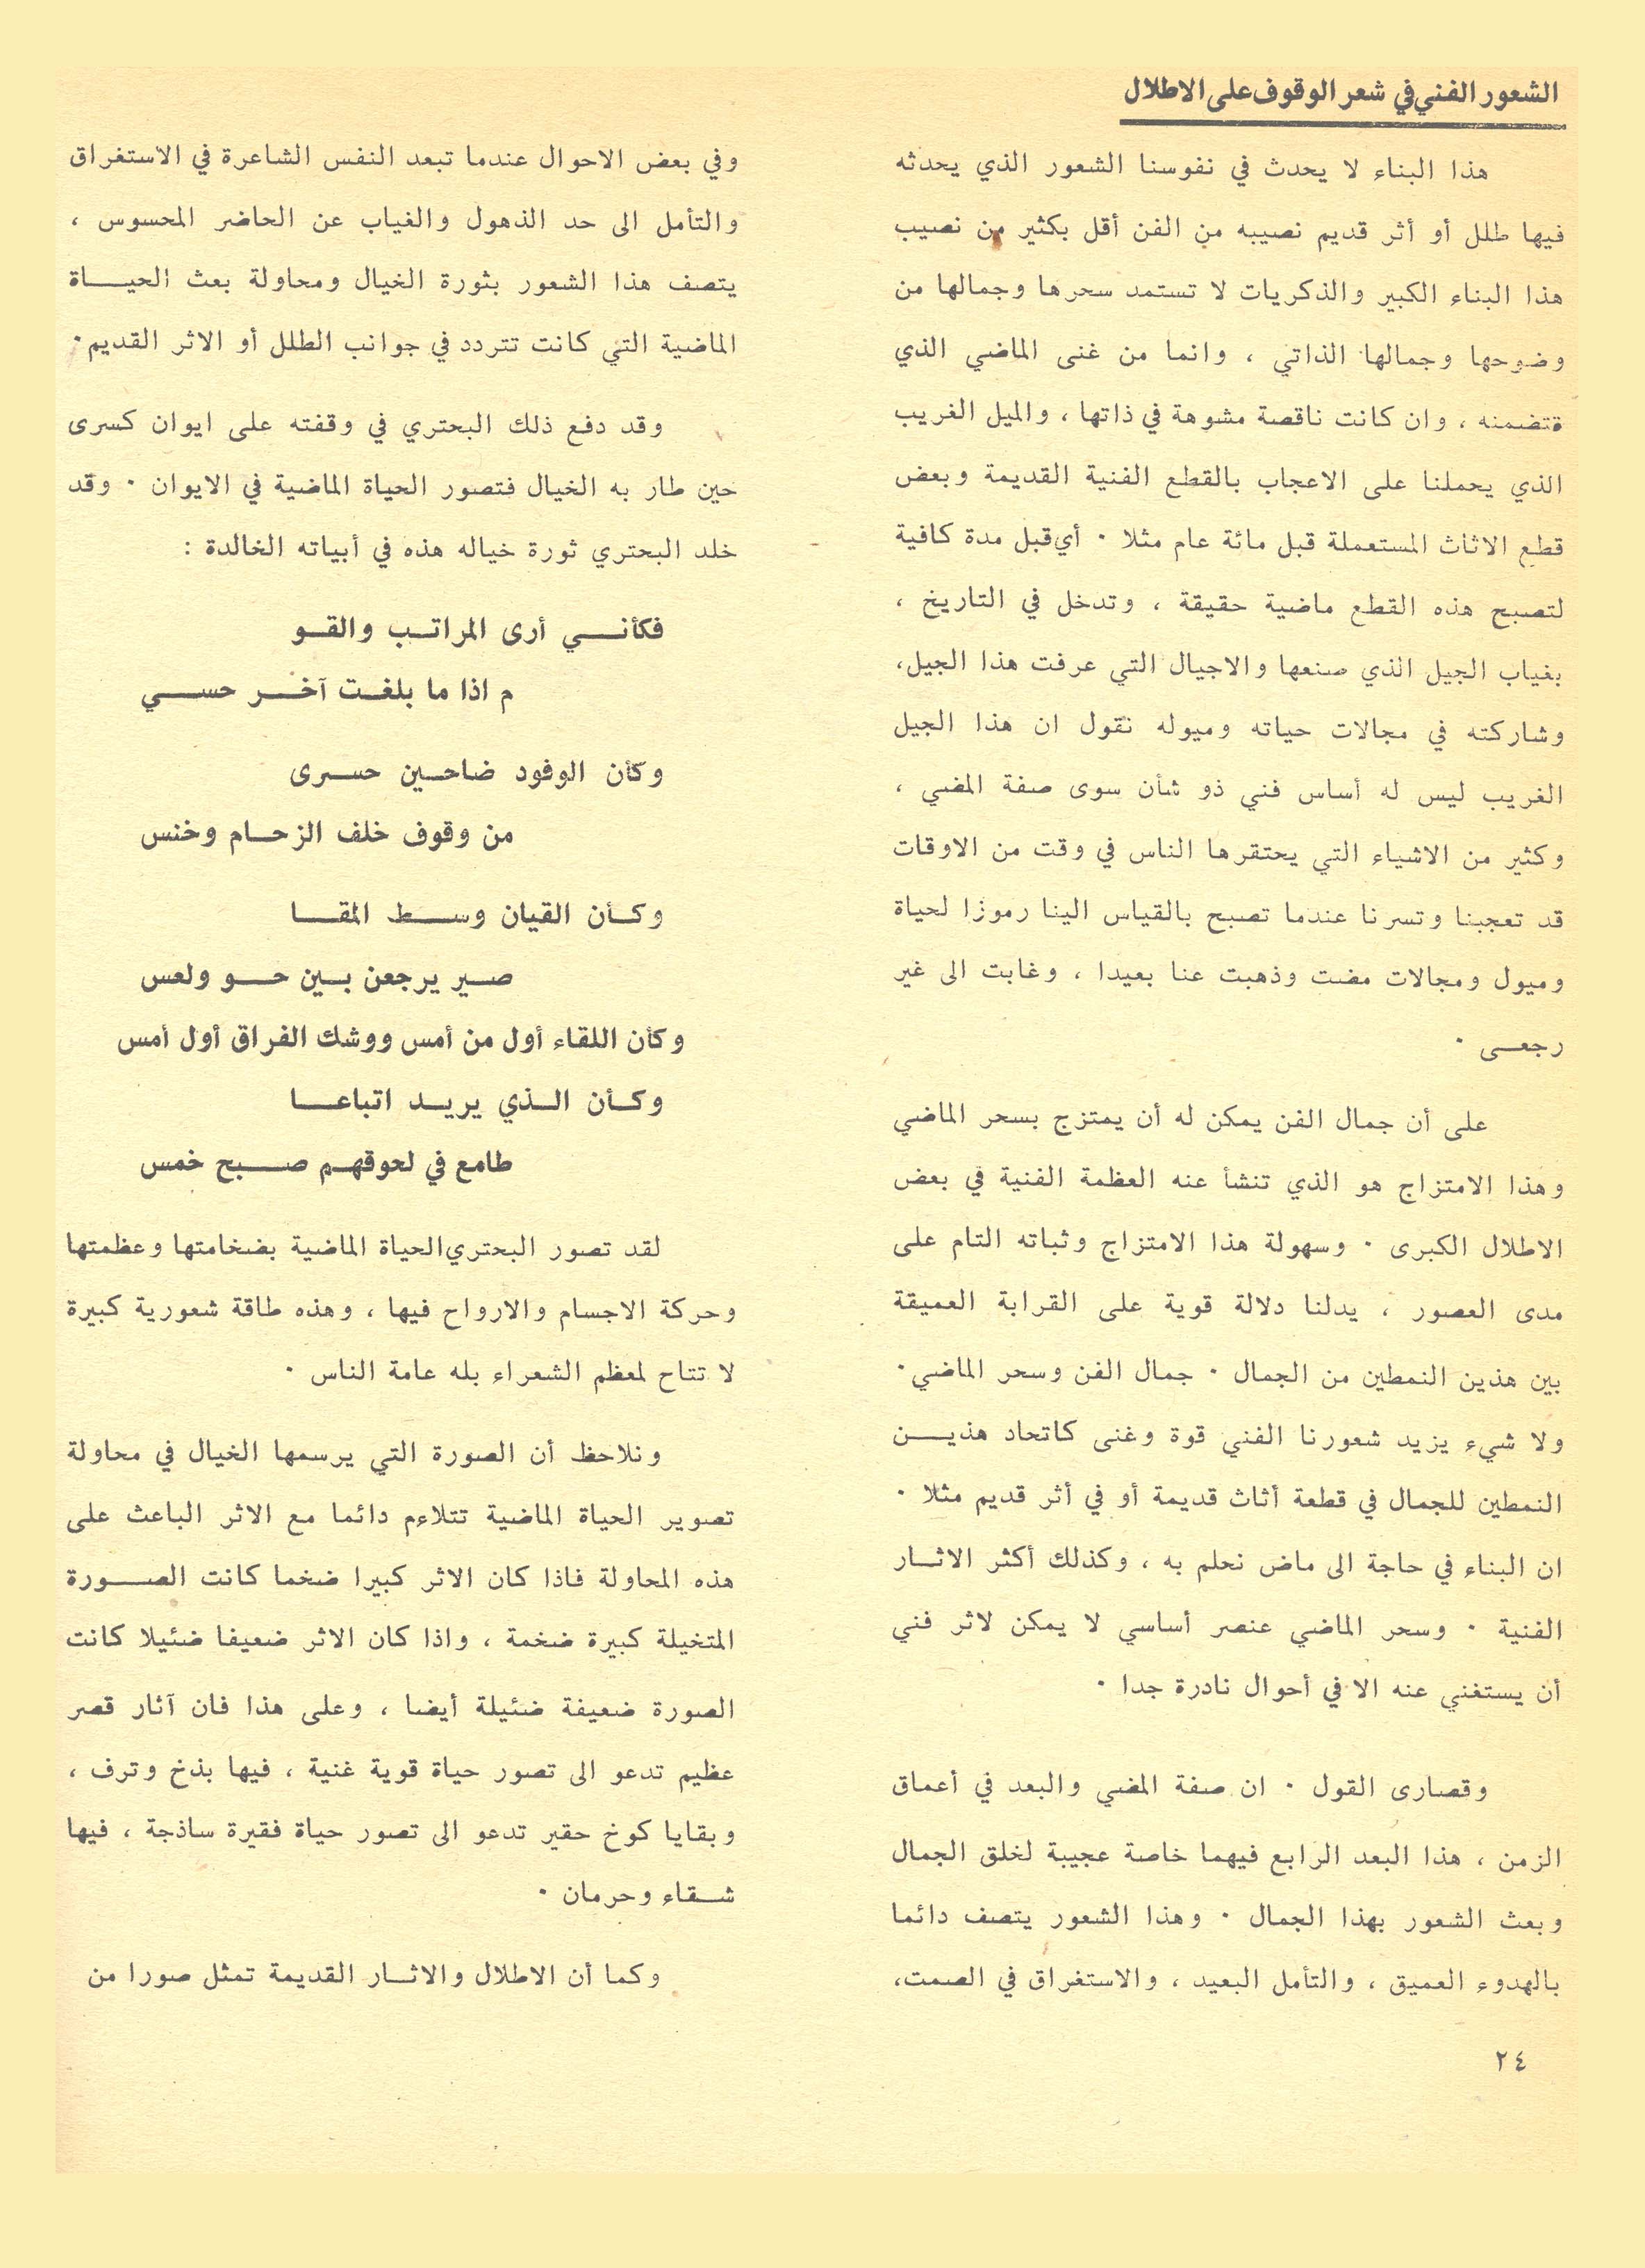 الشعور الفني في شعر الوقوف على الاطلال
هذا البناء لا يحدث في نفوسنا الشعور الذي يحدثه
فيها طلل أو أثر قديم نصيبه من الفن أقل بكثير من نصيب
هذا البناء الكبير والذكريات لا تستمد سحرها وجمالها من
وضوحها وجمالها الذاتي ، وانما من غنى الماضي الذي
تتضمنه ، وان كانت ناقصة مشوهة في ذاتها ، والميل الغريب
الذي يحملنا على الاعجاب بالقطع الفنية القديمة وبعض
قطع الاثاث المستعملة قبل مائة عام مثلا · أي قبل مدة كافية
لتصبح هذه القطع ماضية حقيقة ، وتدخل في التاريخ ،
بغياب الجيل الذي صنعها والاجيال التي عرفت هذا الجيل،
وشاركته في مجالات حياته وميوله نقول ان هذا الجيل
الغريب ليس له أساس فني ذو شأن سوى صفة المضي ،
وكثير من الاشياء التي يحتقرها الناس في وقت من الاوقات
قد تعجبنا وتسرنا عندما تصبح بالقياس الينا رموزا لحياة
وميول ومجالات مضت وذهبت عنا بعيدا ، وغابت الى غير
رجعـى ·
على أن جمال الفن يمكن له أن يمتزج بسحر الماضي
وهذا الامتزاج هو الذي تنشأ عنه العظمة الفنية في بعض
الاطلال الكبرى · وسهولة هذا الامتزاج وثباته التام على
مدى العصور ، يدلنا دلالة قوية على القرابة العميقة
بين هذين النمطين من الجمال · جمال الفن وسحر الماضي·
ولا شيء يزيد شعورنا الفني قوة وغنى كاتحاد هذيـــن
النمطين للجمال في قطعة أثاث قديمة أو في أثر قديم مثلا ·
ان البناء في حاجة الى ماض نحلم به ، وكذلك أكثر الاثـار
الفنية · وسحر الماضي عنصر أساسي لا يمكن لاثر فني
أن يستغني عنه الا في أحوال نادرة جدا ·
وقصارى القول · ان صفة المضي والبعد في أعماق
الزمن ، هذا البعد الرابع فيهما خاصة عجيبة لخلق الجمال
وبعث الشعور بهذا الجمال · وهذا الشعور يتصف دائما
بالهدوء العميق ، والتأمل البعيد ، والاستغراق في الصمت،
وفي بعض الاحوال عندما تبعد النفس الشاعرة في الاستغراق
والتأمل الى حد الذهول والغياب عن الحاضر المحسوس ،
يتصف هذا الشعور بثورة الخيال ومحاولة بعث الحيـــاة
الماضية التي كانت تتردد في جوانب الطلل أو الاثر القديم·
وقد دفع ذلك البحتري في وقفته على ايوان كسرى
حين طار به الخيال فتصور الحياة الماضية في الايوان · وقد
خلد البحتري ثورة خياله هذه في أبياته الخالدة :
فكأنـــي أرى المراتـب والقـو
م اذا ما بلغـت آخـــر حســـي
وكأن الوفود ضاحـين حسـرى
من وقوف خلف الزحـام وخنس
وكـأن القيان وســـط المقـــا
صـير يرجعن بـين حـــو ولعس
وكأن اللقاء أول من أمس ووشك الفراق أول أمس
وكـأن الـذي يريـد اتباعـــا
طامع في لحوقهـم صـــبح خمس
لقد تصور البحتري الحياة الماضية بضخامتها وعظمتها
وحركة الاجسام والارواح فيها ، وهذه طاقة شعورية كبيرة
لا تتاح لمعظم الشعراء بله عامة الناس ·
ونلاحظ أن الصورة التي يرسمها الخيال في محاولة
تصوير الحياة الماضية تتلاءم دائما مع الاثر الباعث على
هذه المحاولة فاذا كان الاثر كبيرا ضخما كانت الصـــورة
المتخيلة كبيرة ضخمة ، واذا كان الاثر ضعيفا ضئيلا كانت
الصورة ضعيفة ضئيلة أيضا ، وعلى هذا فان آثار قصر
عظيم تدعو الى تصور حياة قوية غنية ، فيها بذخ وترف ،
وبقايا كوخ حقير تدعو الى تصور حياة فقيرة ساذجة ، فيها
شـقاء وحرمان ·
وكما أن الاطلال والاثـار القديمة تمثل صورا من
٢٤